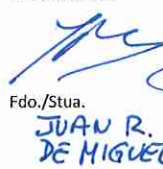 Fdo./Stua.
JUAN R.
DE MIGUEL